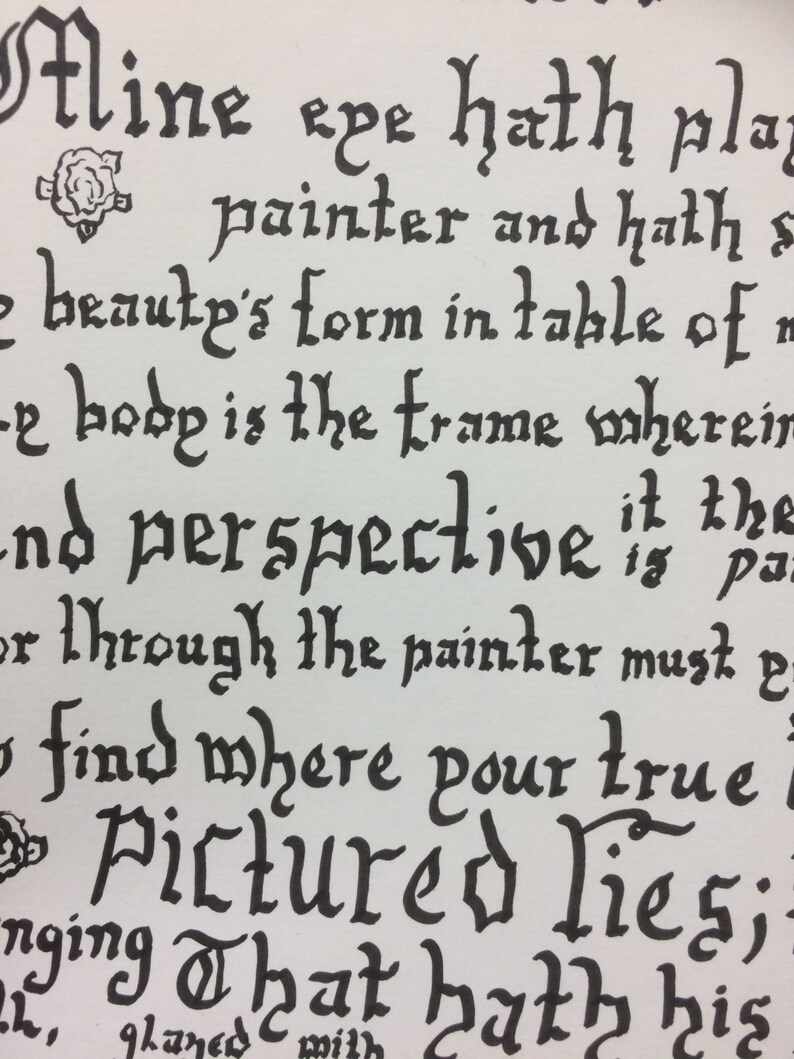 Mine eye hath play
painter and hath s
y beauty's form in table of m
y body is the frame wherein
nd perspective it the
is pai
or through the painter must y
o find where your true
Pictured lies;
nging That hath his
glazed with